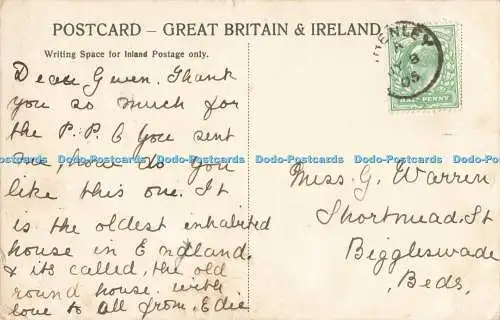 POSTCARD – GREAT BRITAIN & IRELAND.
Writing Space for Inland Postage only.
Dear Gwen. Thank
you so much for
the P.P.C you sent
me, how do you
like this one. It
is the oldest inhabited
house in England.
& its called, the old
round house. with
love to all from. Edie
ENLEY
A
8
05
HALFPENNY
Miss. G. Warren
Shortmead. St
Biggleswade
Beds.
Dodo-Postcards Dodo-Postcards Dodo-Postcards Dodo-Postcards Dodo-Postcards